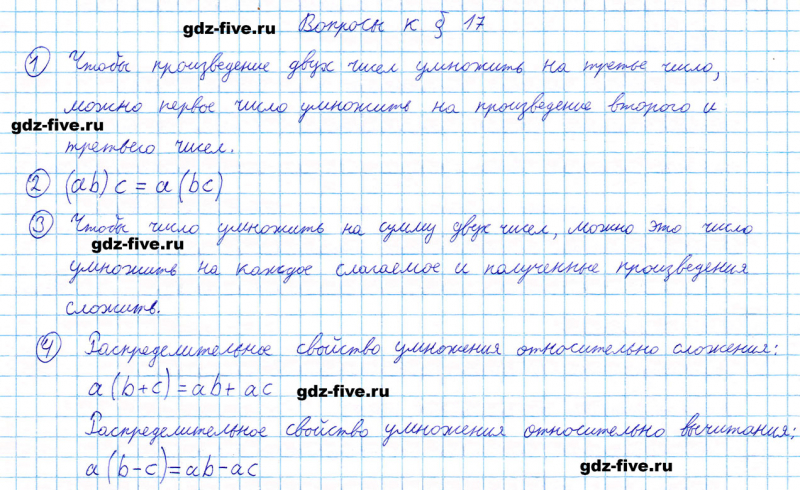 gdz-five.ru Вопросы к § 17
1 Чтобы произведение двух чисел умножить на третье число,
можно первое число умножить на произведение второго и
gdz-five.ru
третьего чисел.
2 (ab)c = a(bc)
3 Чтобы число умножить на сумму двух чисел, можно это число
gdz-five.ru
умножить на каждое слагаемое и полученные произведения
сложить.
4 Распределительное свойство умножения относительно сложения:
a(b+c)=ab+ac gdz-five.ru
Распределительное свойство умножения относительно вычитания:
a(b-c)=ab-ac gdz-five.ru